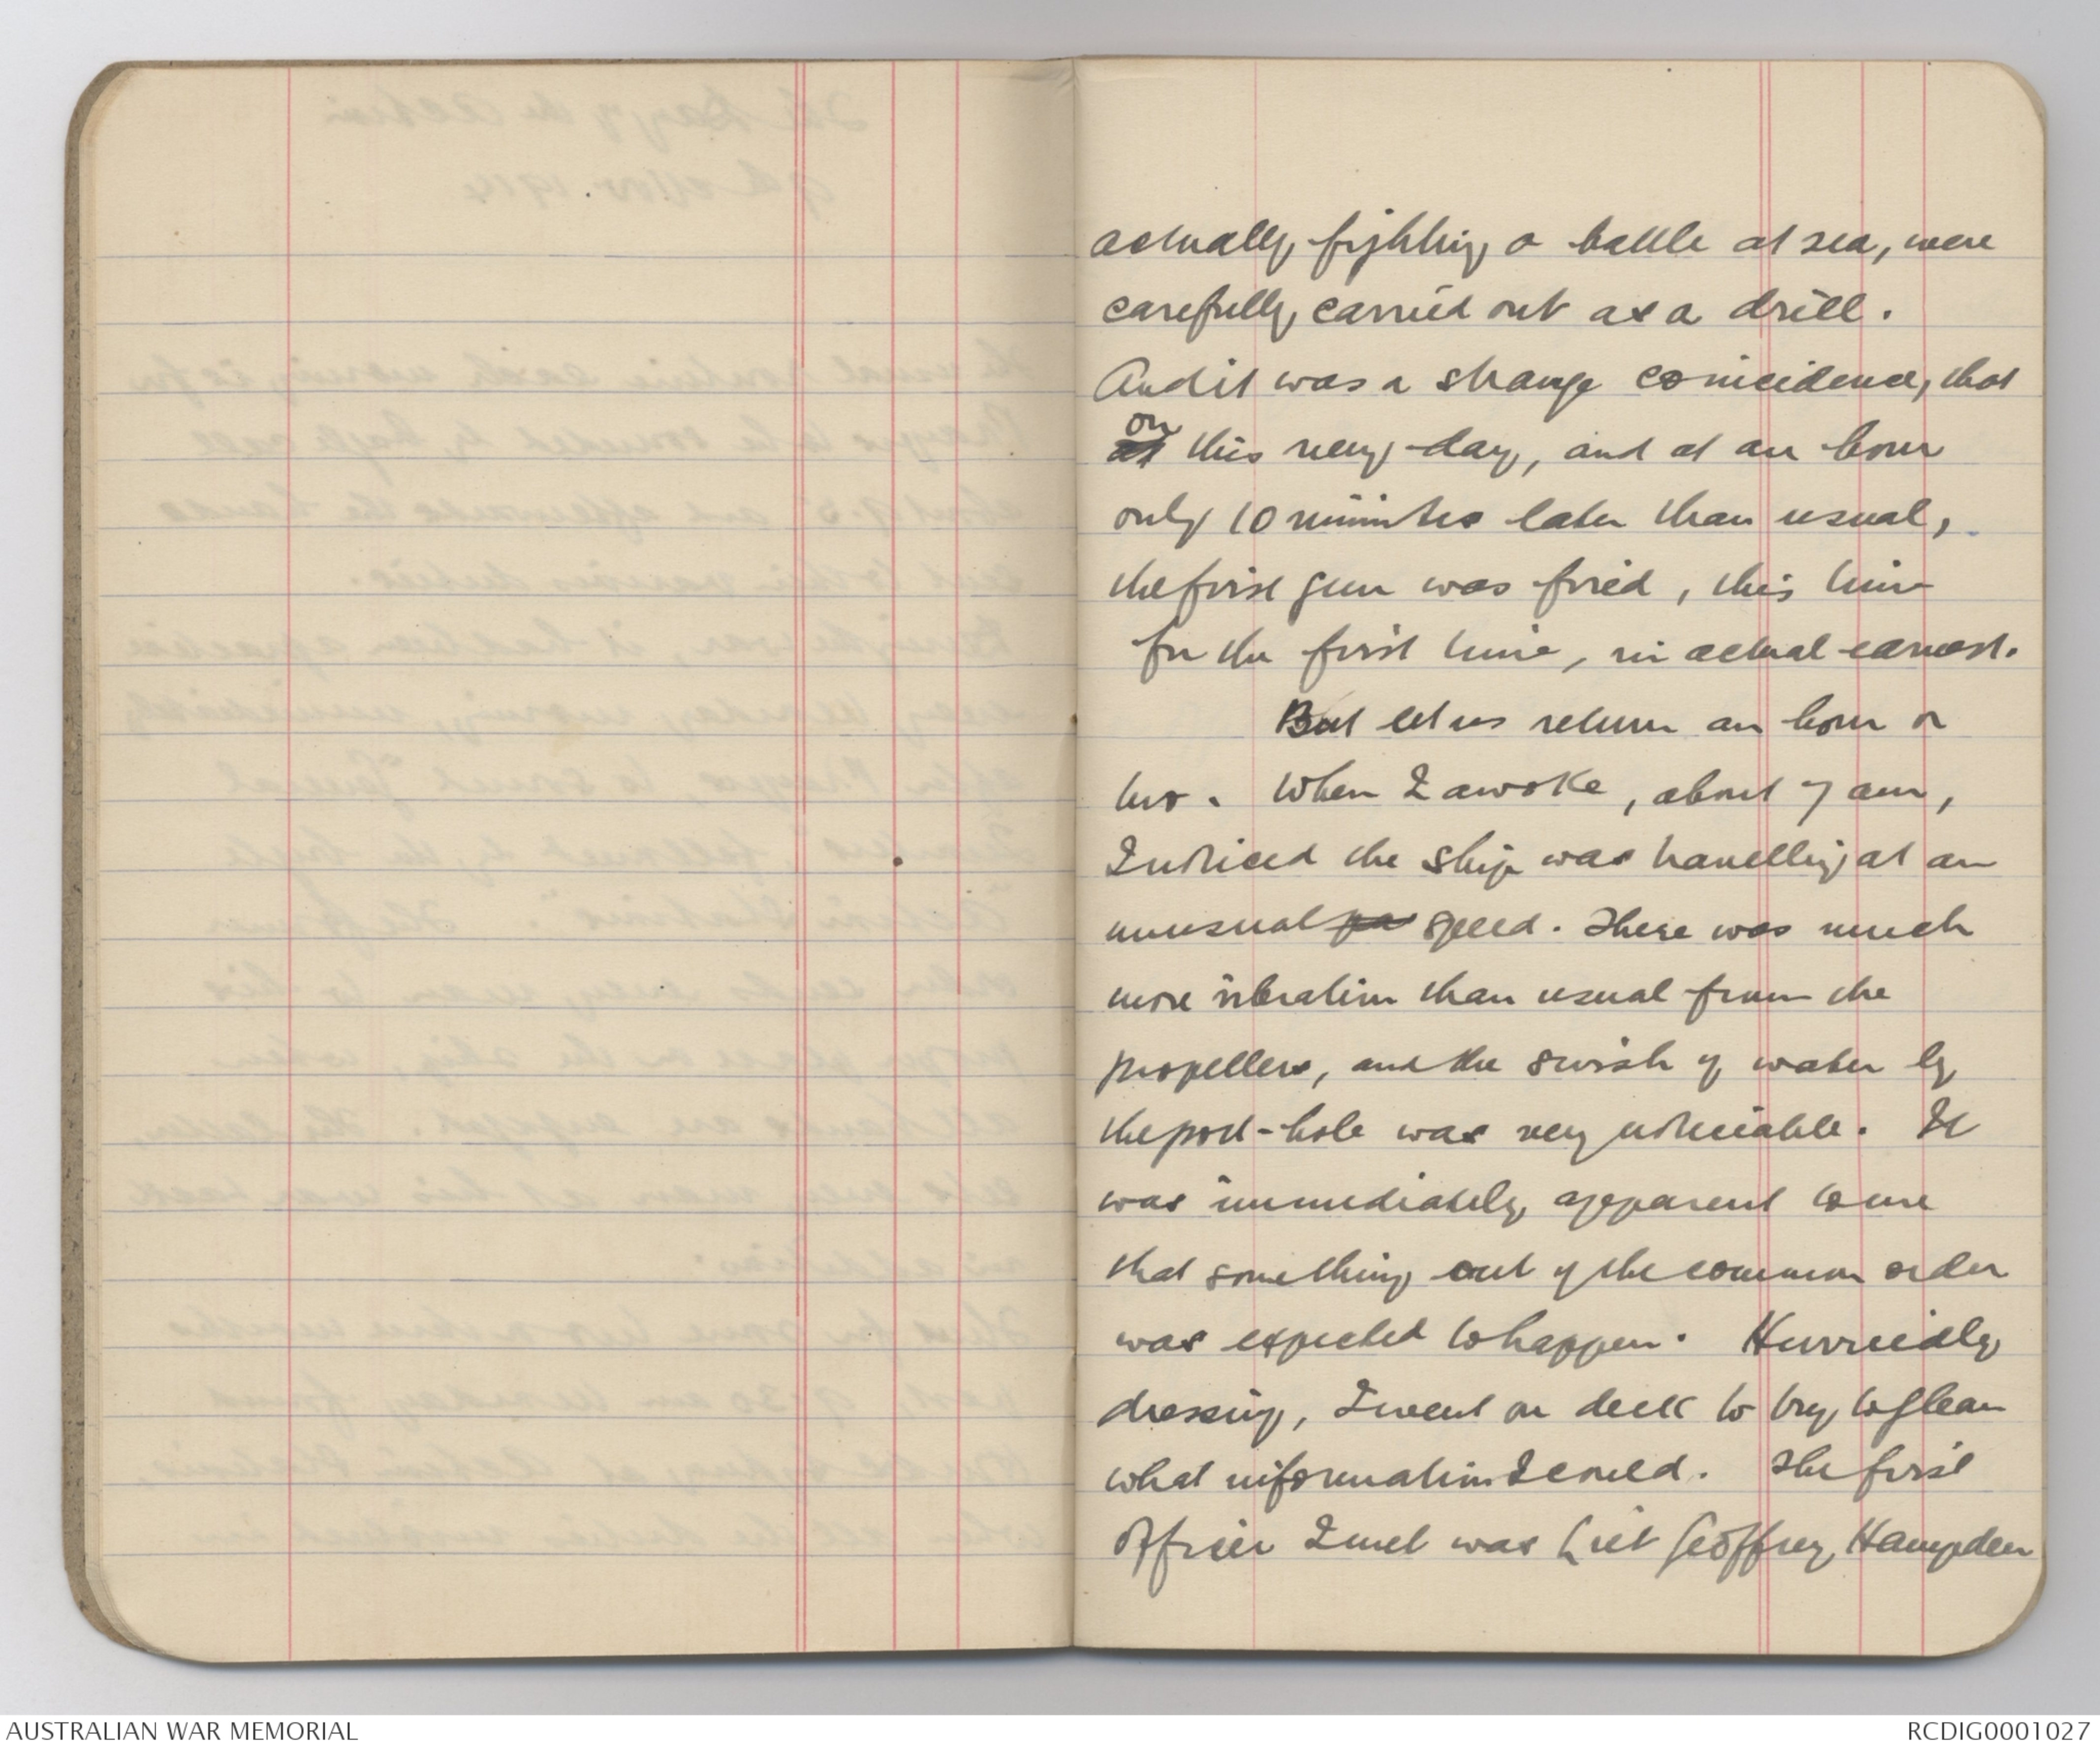 actually fighting a battle at sea, were
carefully carried out as a drill.
And it was a strange coincidence, that
on
at this very day, and at an hour
only 10 minutes later than usual,
the first gun was fired, this time
for the first time, in actual earnest.
But let us return an hour or
two. When I awoke, about 7 am,
I noticed the ship was travelling at an
unusual speed. There was much
more vibration than usual from the
propellers, and the swish of water by
the port-hole was very noticeable. It
was immediately apparent to me
that something out of the common order
was expected to happen. Hurriedly
dressing, I went on deck to try to glean
what information I could. The first
officer I met was Liet Geoffrey Hampden
AUSTRALIAN WAR MEMORIAL
RCDIG0001027